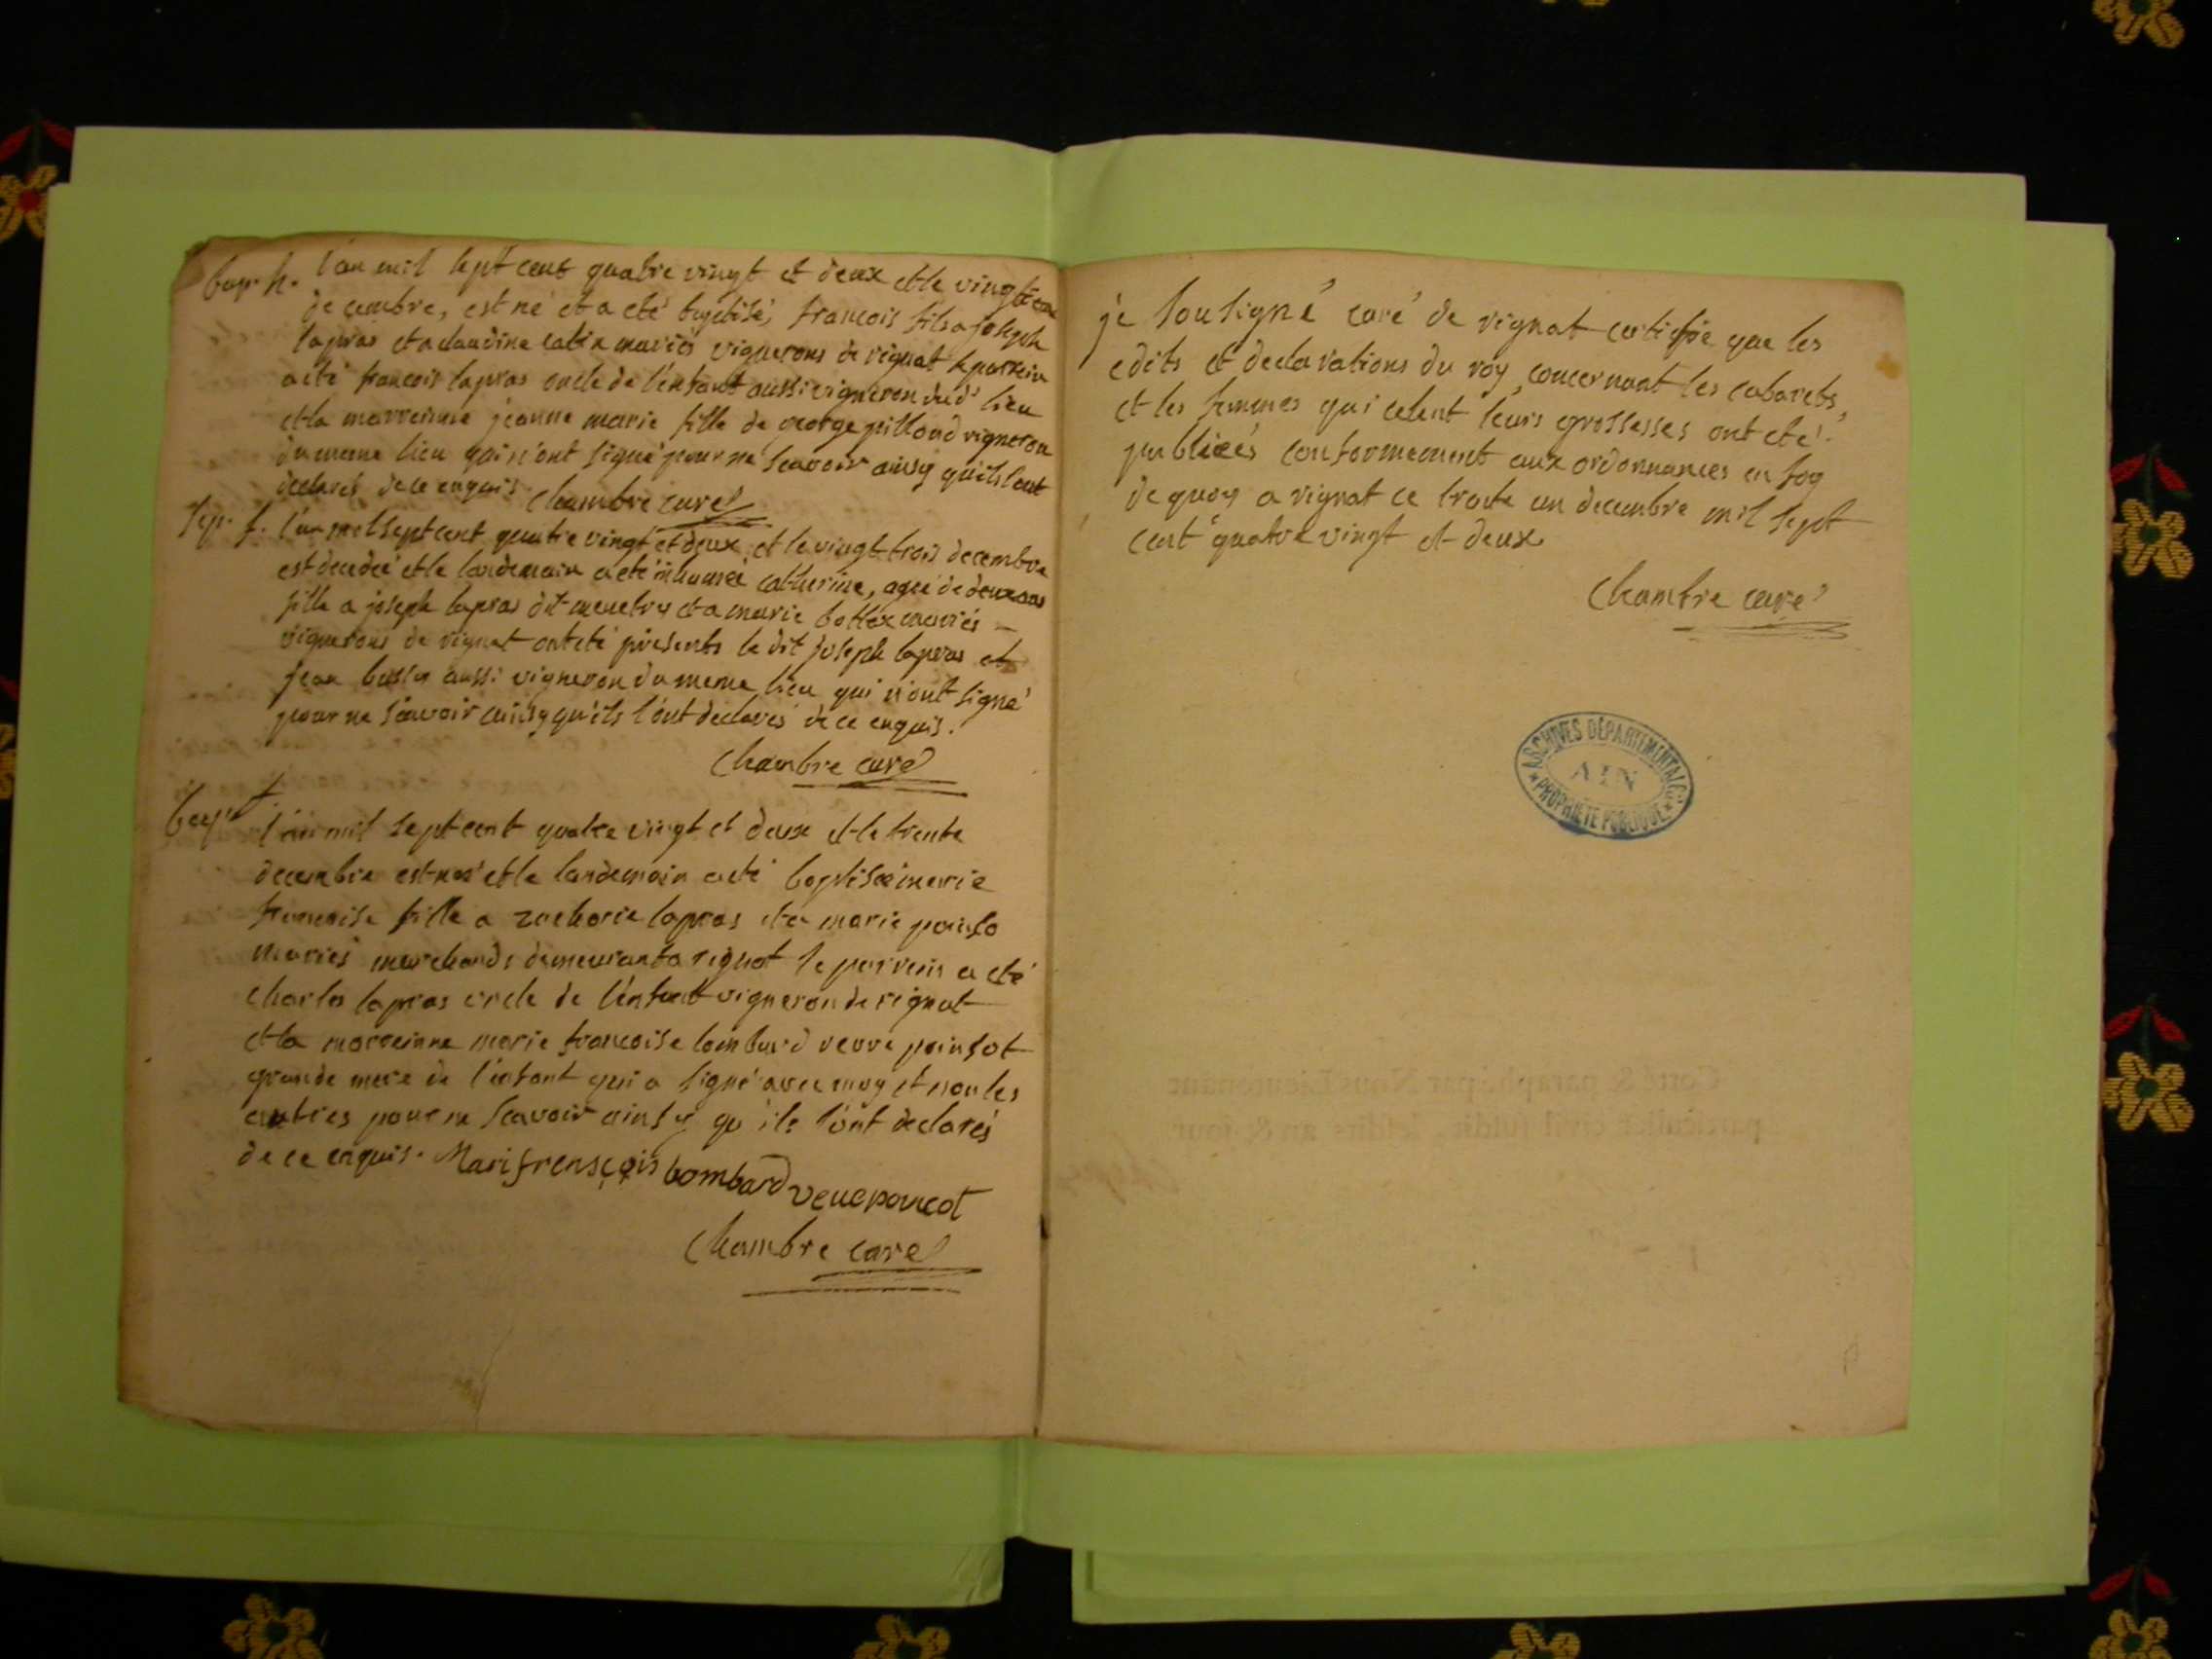 bap. h. l'an mil sept cent quatre vingt et deux et le vingt
decembre, est né et a eté baptisé, francois fils a joseph
lapras et a claudine mariés vignerons de rignat le parrein
a eté francois lapras oncle de l'enfant aussi vigneron dud' lieu
et la marreinne jeanne marie fille de george pilloud vigneron
du meme lieu qui n'ont signé pour ne scavoir ainsy qu'ils l'ont
declarés de ce enquis. Chambre curé
sep. f. l'an mil sept cent quatre vingt et deux et le vingt trois decembre
est decedée et le landemain a eté inhumée catherine, agée de deux ans
fille a joseph lapras dit et a marie bottex mariés
vignerons de rignat ont eté présents le dit joseph lapras et
jean aussi vigneron du meme lieu qui n'ont signé
pour ne scavoir ainsy qu'ils l'ont declarés de ce enquis.
Chambre curé
bap. f. l'an mil sept cent quatre vingt et deux et le trente
decembre est neé et le landemain a eté baptisée marie
francoise fille a zacharie lapras et a marie poinso
mariés marchands demeurant a rignat le parrein a eté
charles lapras oncle de l'enfant vigneron de rignat
et la marreinne marie francoise lombard veuve poinsot
grande mere de l'enfant qui a signé avec moy et non les
autres pour ne scavoir ainsy qu'ils l'ont declarés
de ce enquis. Marifrensçois lombard veuepouicot
Chambre curé
je soutigné curé de rignat certifie que les
edits et declarations du roy concernant les cabarets,
et les femmes qui celent leurs grossesses ont eté
publiées conformement aux ordonnances en foy
de quoy a rignat ce trente un decembre mil sept
cent quatre vingt et deux
Chambre curé
ARCHIVES DÉPARTEMENTALES
AIN
PROPRIÉTÉ PUBLIQUE